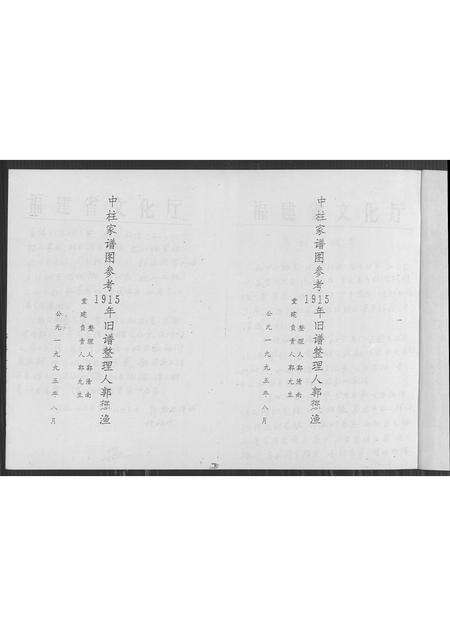 福建省文化厅
中柱家谱图参考1915年旧谱整理人郭渔
整理人郭清南
重建负责人郭允生
公元一九九五年八月
福建省文化厅
中柱家谱图参考1915年旧谱整理人郭渔
整理人郭清南
重建负责人郭允生
公元一九九五年八月